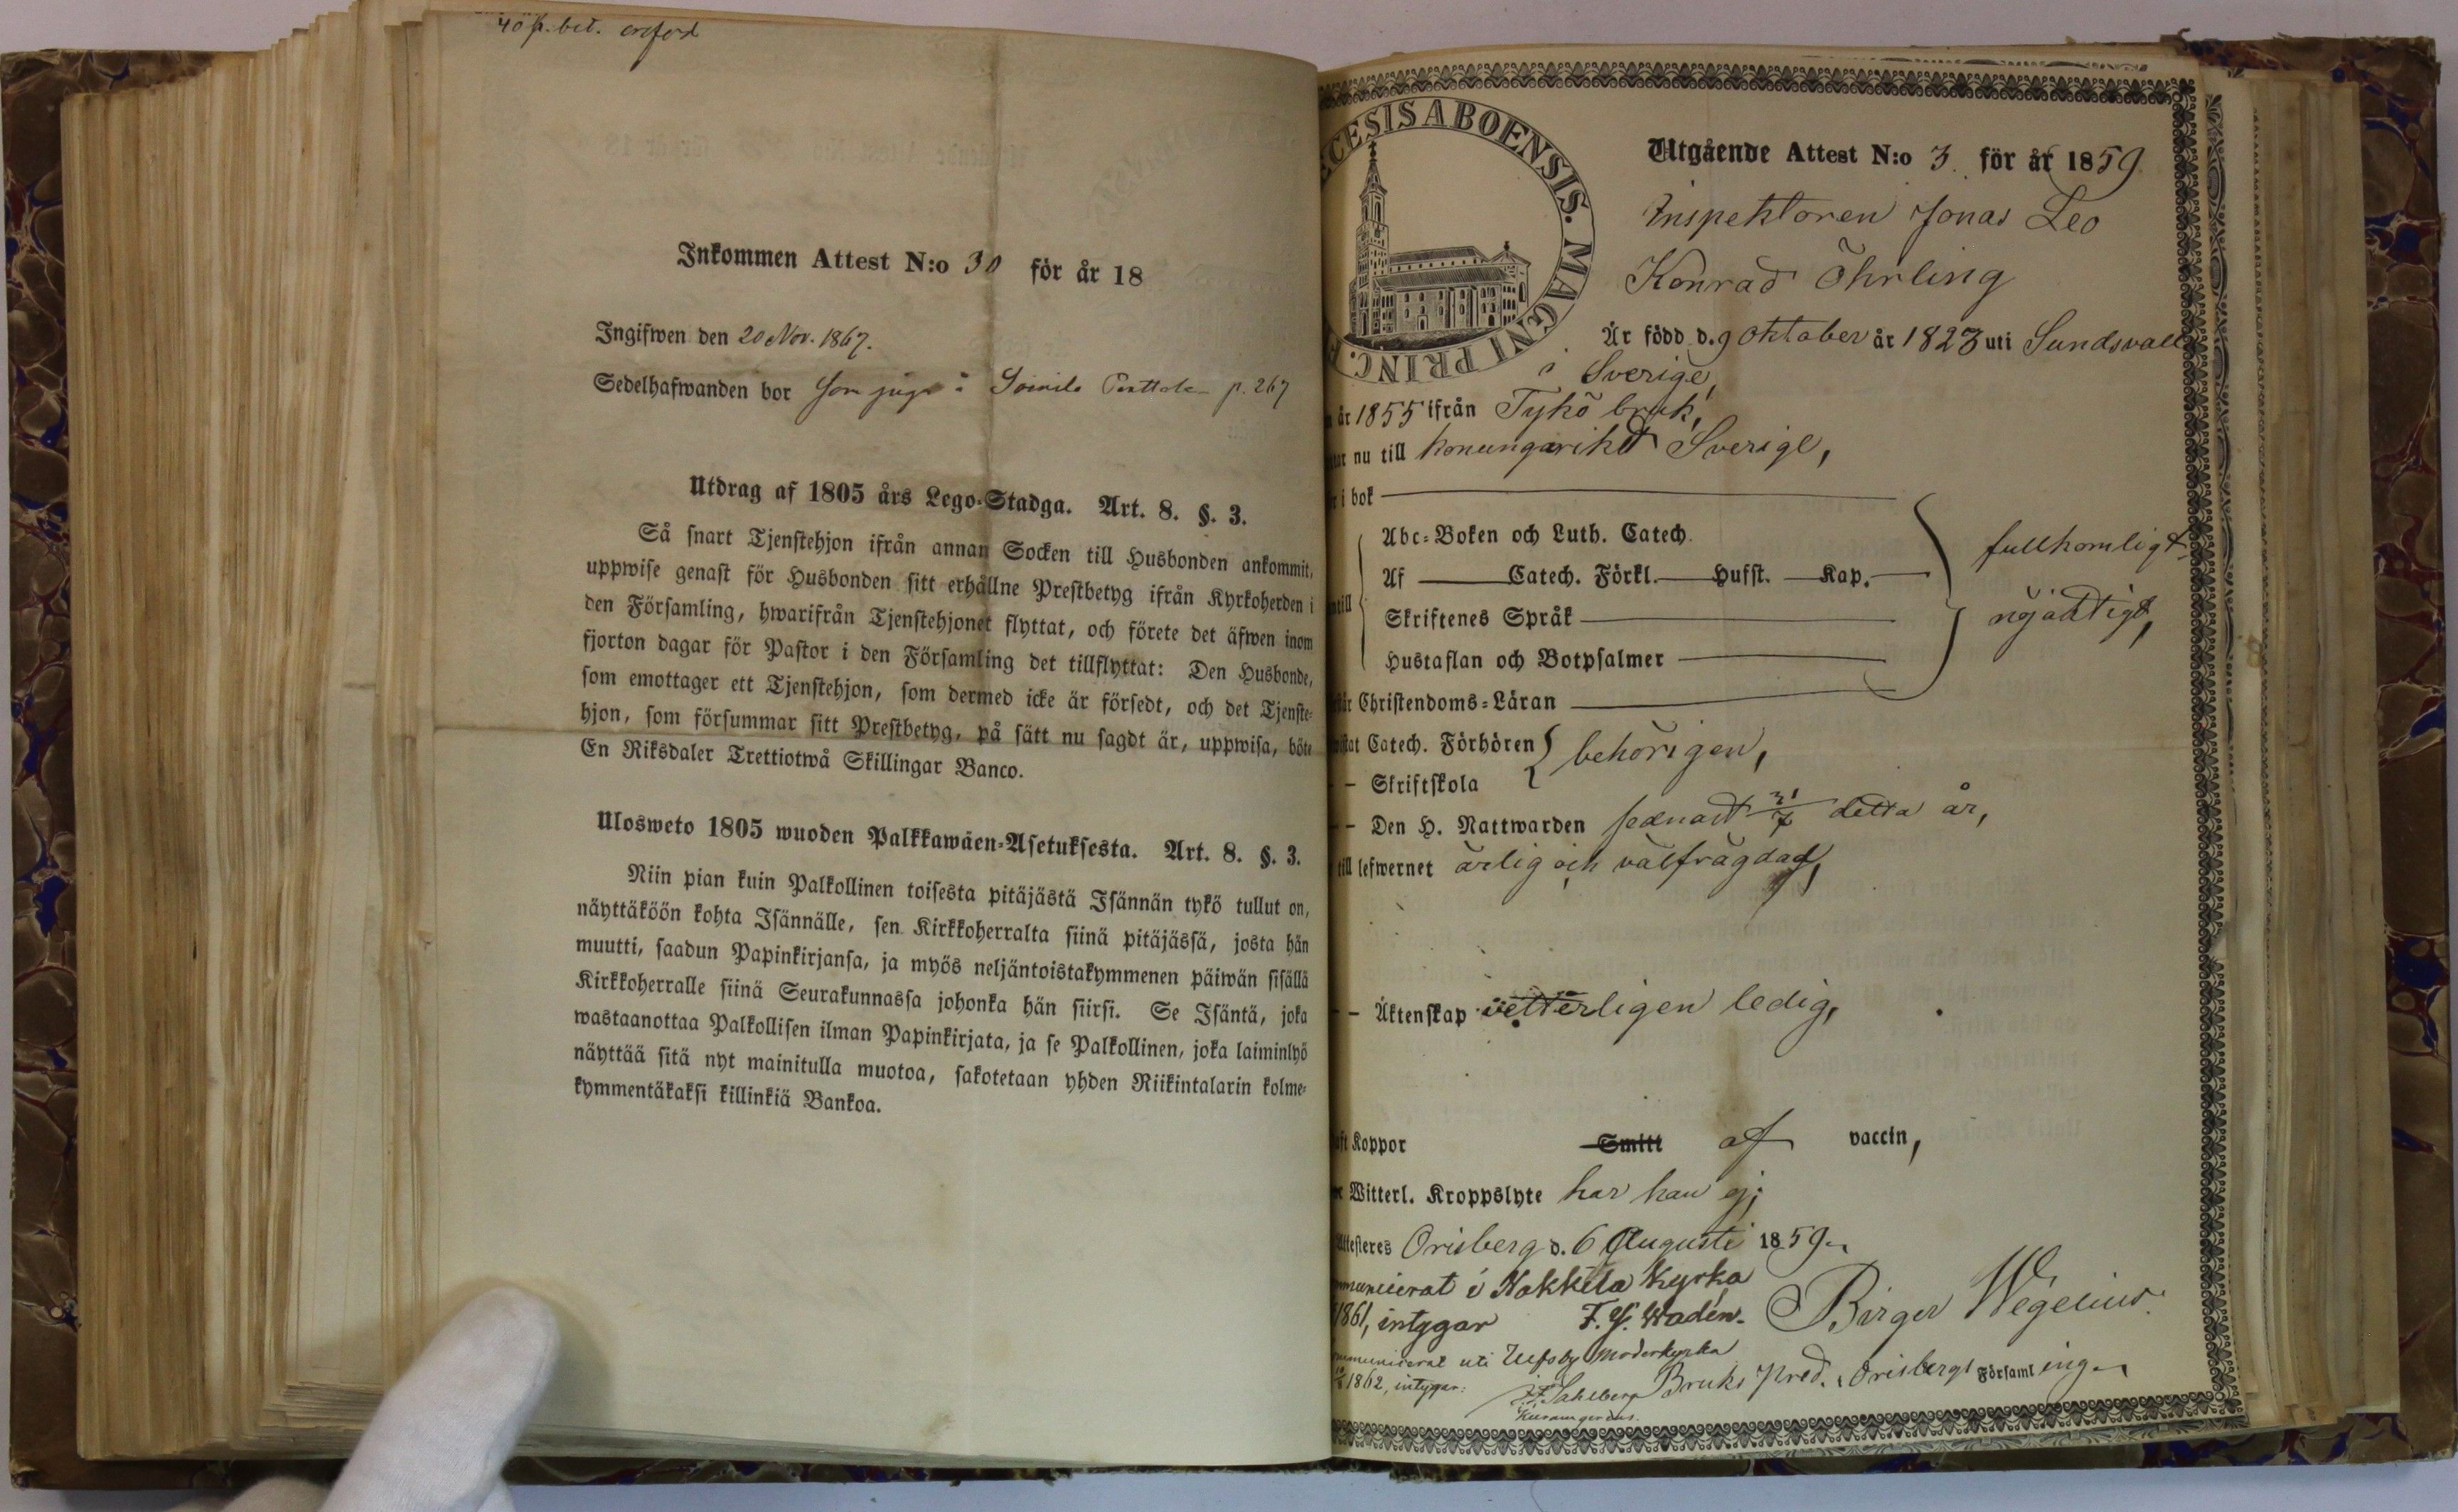 40 p. bet.
Inkommen Attest N:o 30 för år 18
Ingifwen den 20 Nov. 1867.
Sedelhafwanden bor som piga i Somila Penttala p. 267
Utdrag af 1805 års Lego-Stadga. Art. 8. §. 3.
Så snart Tjenstehjon ifrån annan Socken till Husbonden ankommit,
uppwise genast för Husbonden sitt erhållne Prestbetyg ifrån Kyrkoherden i
den Församling, hwarifrån Tjenstehjonet flyttat, och förete det äfwen inom
fjorton dagar för Pastor i den Församling det tillflyttat: Den Husbonde,
som emottager ett Tjenstehjon, som dermed icke är försedt, och det Tjenste-
hjon, som försummar sitt Prestbetyg, på sätt nu sagdt är, uppwisa, böte
En Riksdaler Trettiotwå Skillingar Banco.
Ulosweto 1805 wuoden Palkkawäen-Asetuksesta. Art. 8. §. 3.
Niin pian kuin Palkollinen toisesta pitäjästä Isännän tykö tullut on,
näyttäköön kohta Isännälle, sen Kirkkoherralta siinä pitäjässä, josta hän
muutti, saadun Papinkirjansa, ja myös neljäntoistakymmenen päiwän sisällä
Kirkkoherralle siinä Seurakunnassa johonka hän siirsi. Se Isäntä, joka
wastaanottaa Palkollisen ilman Papinkirjata, ja se Palkollinen, joka laiminlyö
näyttää sitä nyt mainitulla muotoa, sakotetaan yhden Riikintalarin kolme-
kymmentäkaksi killinkiä Bankoa.
CESIS ABOENSIS. MAGNI PRINC. F
Utgående Attest N:o 3. för år 1859.
Inspektoren Jonas Leo
Konrad Öhrling
Är född d. 9 Oktober år 1823 uti Sundsvall
i Sverige,
år 1855 ifrån Tykö bruk,
nu till konungariket Sverige,
i bok
Abc-Boken och Luth. Catech.
Af Catech. Förkl. Husst. Kap.
fullkomligt
Skriftenes Språk
nöjaktigt,
Hustaflan och Botpsalmer
Christendoms-Läran
Catech. Förhören
behörigen,
- Skriftskola
- Den H. Nattwarden sednast 31/7 detta år,
till lefwernet ärlig och välfrägdad,
- Äktenskap vetterligen ledig,
Koppor Smitt af vaccin,
Witterl. Kroppslyte har han ej;
Attesteres Orisberg d. 6 Augusti 1859.
municerat i Nokkila Kyrka
1861, intygar F. J. Wadén.
Birger Wegelius.
municerat uti Ulfsby Moderkyrka
1862, intygar: J. F. Sahlberg
Bruks Pred. i Orisbergs Församling.